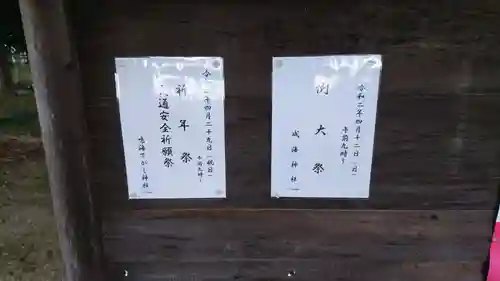 例大祭
令和二年四月十二日(日)
午前九時〜
成海神社
祈年祭
交通安全祈願祭
令和二年四月二十九日(祝日)
午前九時〜